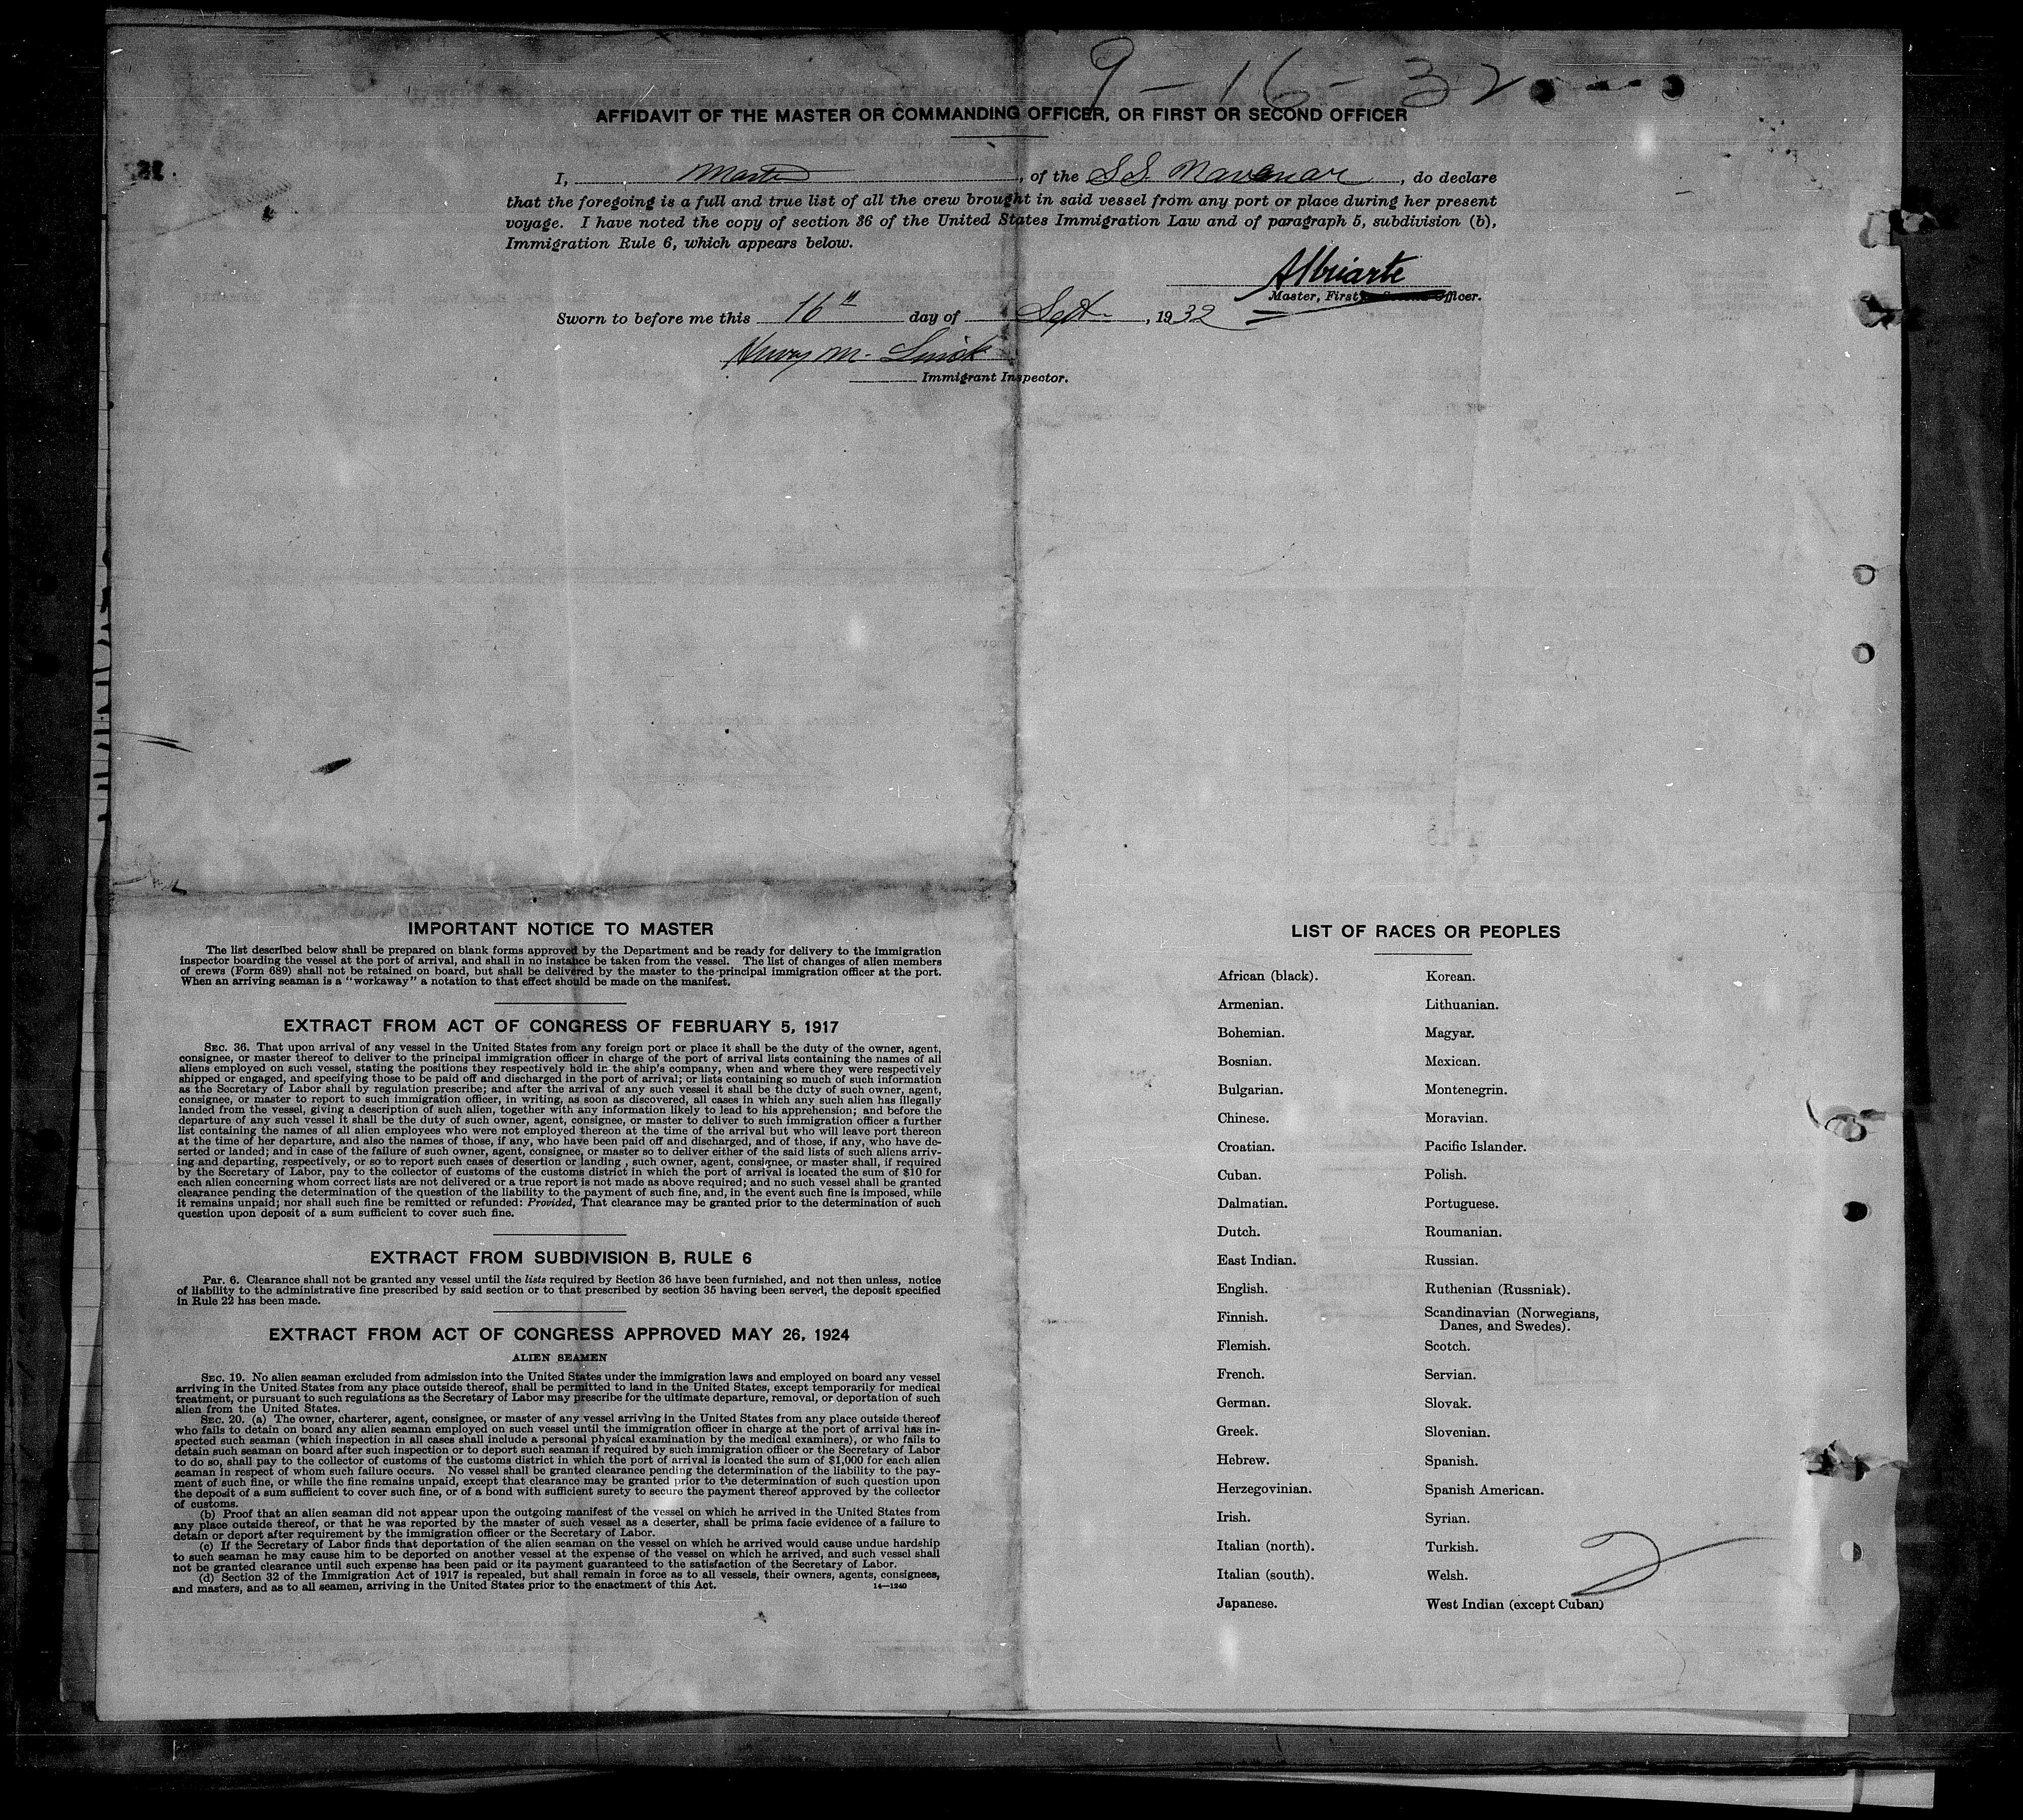 9-16-32
AFFIDAVIT OF THE MASTER OR COMMANDING OFFICER, OR FIRST OR SECOND OFFICER
I, Master, of the S.S. Navemar, do declare
that the foregoing is a full and true list of all the crew brought in said vessel from any port or place during her present
voyage. I have noted the copy of section 36 of the United States Immigration Law and of paragraph 5, subdivision (b),
Immigration Rule 6, which appears below.
Master, First Officer.
Sworn to before me this 16" day of Sept, 1932
M.
Immigrant Inspector.
IMPORTANT NOTICE TO MASTER
The list described below shall be prepared on blank forms approved by the Department and be ready for delivery to the immigration
inspector boarding the vessel at the port of arrival, and shall in no instance be taken from the vessel. The list of changes of alien members
of crews (Form 689) shall not be retained on board, but shall be delivered by the master to the principal immigration officer at the port.
When an arriving seaman is a "workaway" a notation to that effect should be made on the manifest.
EXTRACT FROM ACT OF CONGRESS OF FEBRUARY 5, 1917
SEC. 36. That upon arrival of any vessel in the United States from any foreign port or place it shall be the duty of the owner, agent,
consignee, or master thereof to deliver to the principal immigration officer in charge of the port of arrival lists containing the names of all
aliens employed on such vessel, stating the positions they respectively hold in the ship's company, when and where they were respectively
shipped or engaged, and specifying those to be paid off and discharged in the port of arrival; or lists containing so much of such information
as the Secretary of Labor shall by regulation prescribe; and after the arrival of any such vessel it shall be the duty of such owner, agent,
consignee, or master to report to such immigration officer, in writing, as soon as discovered, all cases in which any such alien has illegally
landed from the vessel, giving a description of such alien, together with any information likely to lead to his apprehension; and before the
departure of any such vessel it shall be the duty of such owner, agent, consignee, or master to deliver to such immigration officer a further
list containing the names of all alien employees who were not employed thereon at the time of the arrival but who will leave port thereon
at the time of her departure, and also the names of those, if any, who have been paid off and discharged, and of those, if any, who have de-
serted or landed; and in case of the failure of such owner, agent, consignee, or master so to deliver either of the said lists of such aliens arriv-
ing and departing, respectively, or so to report such cases of desertion or landing, such owner, agent, consignee, or master shall, if required
by the Secretary of Labor, pay to the collector of customs of the customs district in which the port of arrival is located the sum of $10 for
each alien concerning whom correct lists are not delivered or a true report is not made as above required; and no such vessel shall be granted
clearance pending the determination of the question of the liability to the payment of such fine, and, in the event such fine is imposed, while
it remains unpaid; nor shall such fine be remitted or refunded: Provided, That clearance may be granted prior to the determination of such
question upon deposit of a sum sufficient to cover such fine.
EXTRACT FROM SUBDIVISION B, RULE 6
Par. 6. Clearance shall not be granted any vessel until the lists required by Section 36 have been furnished, and not then unless, notice
of liability to the administrative fine prescribed by said section or to that prescribed by section 35 having been served, the deposit specified
in Rule 22 has been made.
EXTRACT FROM ACT OF CONGRESS APPROVED MAY 26, 1924
ALIEN SEAMEN
SEC. 19. No alien seaman excluded from admission into the United States under the immigration laws and employed on board any vessel
arriving in the United States from any place outside thereof, shall be permitted to land in the United States, except temporarily for medical
treatment, or pursuant to such regulations as the Secretary of Labor may prescribe for the ultimate departure, removal, or deportation of such
alien from the United States.
SEC. 20. (a) The owner, charterer, agent, consignee, or master of any vessel arriving in the United States from any place outside thereof
who fails to detain on board any alien seaman employed on such vessel until the immigration officer in charge at the port of arrival has in-
spected such seaman (which inspection in all cases shall include a personal physical examination by the medical examiners), or who fails to
detain such seaman on board after such inspection or to deport such seaman if required by such immigration officer or the Secretary of Labor
to do so, shall pay to the collector of customs of the customs district in which the port of arrival is located the sum of $1,000 for each alien
seaman in respect of whom such failure occurs. No vessel shall be granted clearance pending the determination of the liability to the pay-
ment of such fine, or while the fine remains unpaid, except that clearance may be granted prior to the determination of such question upon
the deposit of a sum sufficient to cover such fine, or of a bond with sufficient surety to secure the payment thereof approved by the collector
of customs.
(b) Proof that an alien seaman did not appear upon the outgoing manifest of the vessel on which he arrived in the United States from
any place outside thereof, or that he was reported by the master of such vessel as a deserter, shall be prima facie evidence of a failure to
detain or deport after requirement by the immigration officer or the Secretary of Labor.
(c) If the Secretary of Labor finds that deportation of the alien seaman on the vessel on which he arrived would cause undue hardship
to such seaman he may cause him to be deported on another vessel at the expense of the vessel on which he arrived, and such vessel shall
not be granted clearance until such expense has been paid or its payment guaranteed to the satisfaction of the Secretary of Labor.
(d) Section 32 of the Immigration Act of 1917 is repealed, but shall remain in force as to all vessels, their owners, agents, consignees,
and masters, and as to all seamen, arriving in the United States prior to the enactment of this Act.
14—1240
LIST OF RACES OR PEOPLES
African (black).
Armenian.
Bohemian.
Bosnian.
Bulgarian.
Chinese.
Croatian.
Cuban.
Dalmatian.
Dutch.
East Indian.
English.
Finnish.
Flemish.
French.
German.
Greek.
Hebrew.
Herzegovinian.
Irish.
Italian (north).
Italian (south).
Japanese.
Korean.
Lithuanian.
Magyar.
Mexican.
Montenegrin.
Moravian.
Pacific Islander.
Polish.
Portuguese.
Roumanian.
Russian.
Ruthenian (Russniak).
Scandinavian (Norwegians,
Danes, and Swedes).
Scotch.
Servian.
Slovak.
Slovenian.
Spanish.
Spanish American.
Syrian.
Turkish.
Welsh.
West Indian (except Cuban)
2